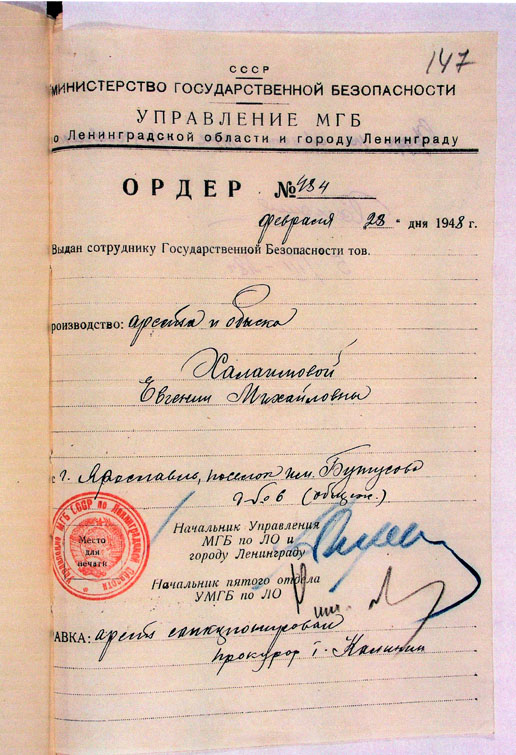 147
СССР
МИНИСТЕРСТВО ГОСУДАРСТВЕННОЙ БЕЗОПАСНОСТИ
УПРАВЛЕНИЕ МГБ
о Ленинградской области и городу Ленинграду
ОРДЕР №484
февраля 28 " дня 1948 г.
Выдан сотруднику Государственной Безопасности тов.
роизводство: ареста и обыска
Халаимовой
Евгении Михайловны
с г. Ярославль, поселок им. Бутусова
(общеж.)
Начальник Управления
МГБ по ЛО и
городу Ленинграду
Управление МГБ СССР по Ленинградской области
Место
для
печати
Начальник пятого отдела
УМГБ по ЛО
АВКА: арест санкционирован
прокурор г. Калинин